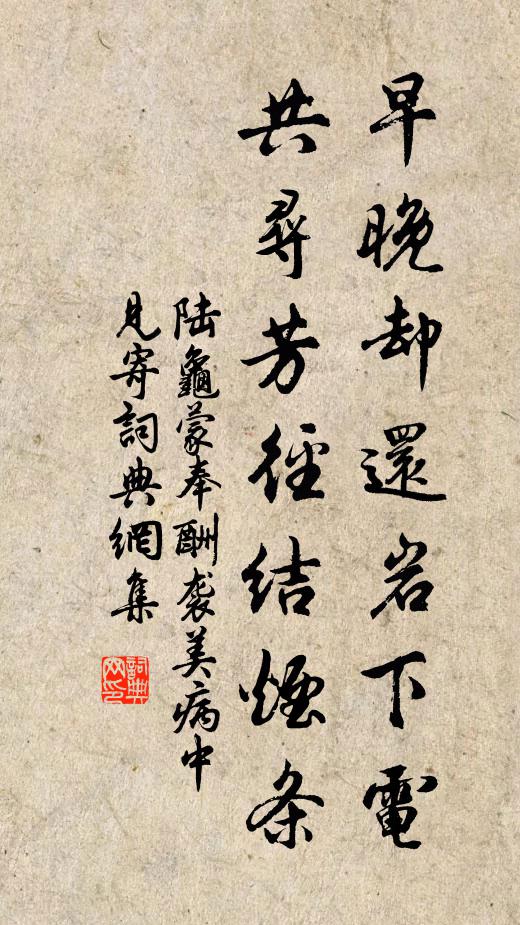 早晚却還岩下電
共尋芳徑結煙条
陸龜蒙奉酬袭美病中
見寄詞典網集
詞典网印